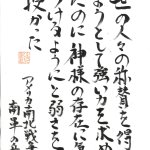 の人々の称賛を得
ようとして強い力を求め
たのに神様の存在に
づけるようにと弱さを
授かった
アメリカ南北戦争
南軍兵